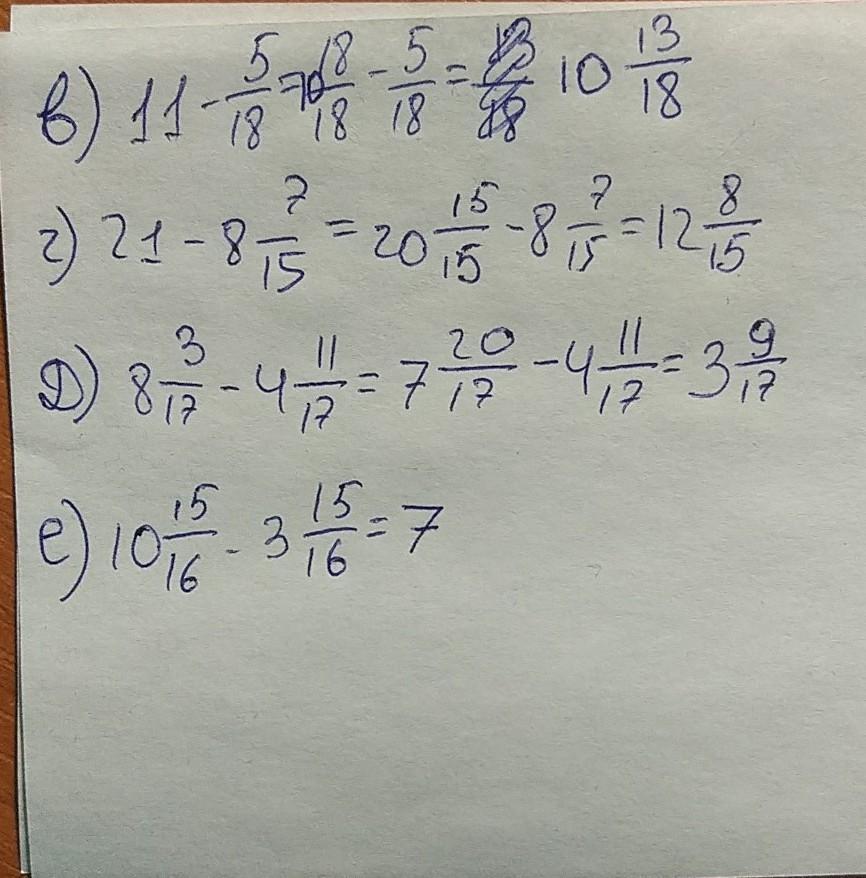 в) 11 - 5/18 = 10 18/18 - 5/18 = 10 13/18
г) 21 - 8 7/15 = 20 15/15 - 8 7/15 = 12 8/15
Д) 8 3/17 - 4 11/17 = 7 20/17 - 4 11/17 = 3 9/17
е) 10 15/16 - 3 15/16 = 7